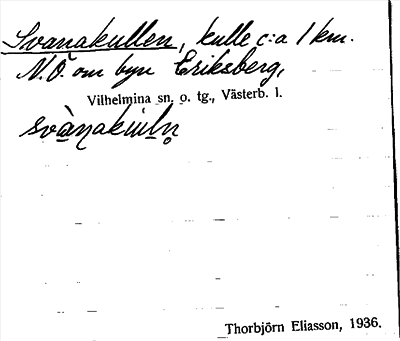 Svanakullen, kulle c:a 1 km.
N.Ö. om byn Eriksberg,
Vilhelmina sn. o. tg., Västerb. l.
Thorbjörn Eliasson, 1936.